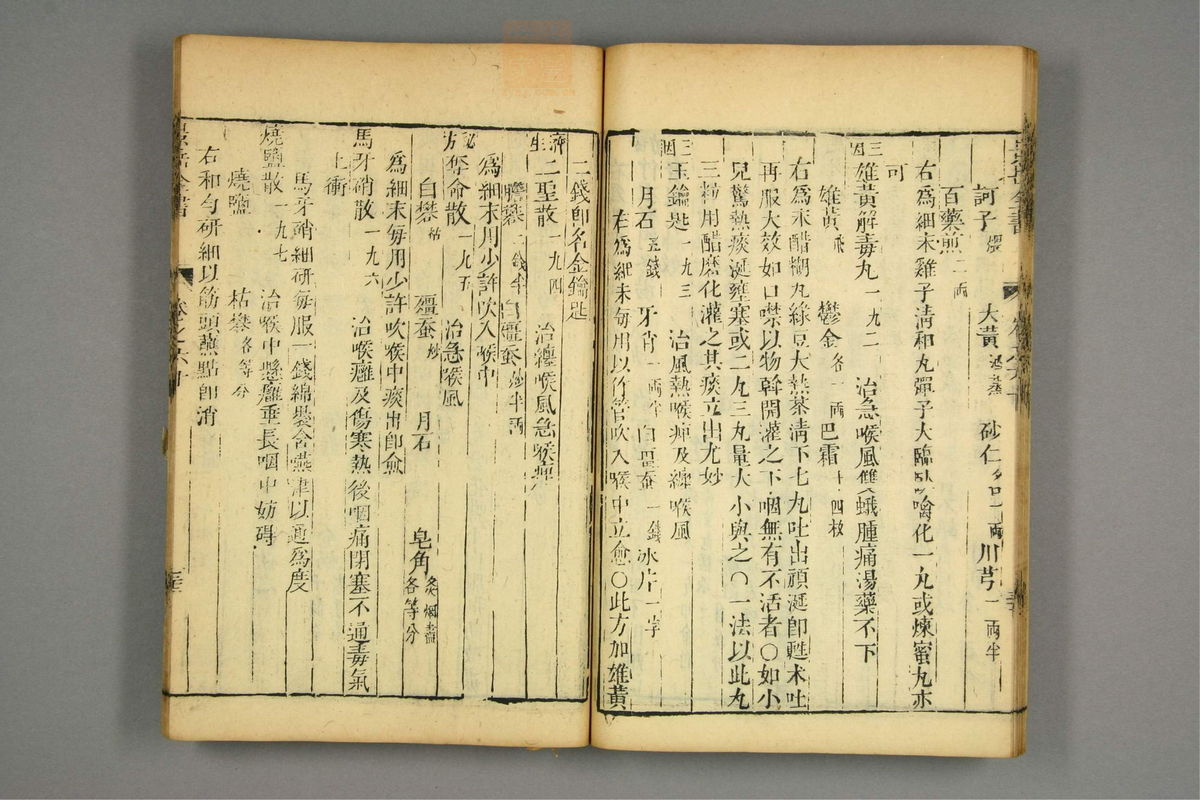 訶子煨 大黃酒蒸 砂仁各一兩 川芎一兩半
百藥煎二兩
右爲細末雞子淸和丸彈子大臨臥噙化一丸或煉蜜丸亦
可
三因雄黃解毒丸一九二 治急喉風雙蛾腫痛湯藥不下
雄黃飛 鬱金各一兩 巴霜十四枚
右爲末醋糊丸綠豆大熱茶淸下七丸吐出頑涎卽甦未吐
再服大效如口噤以物斡開灌之下咽無有不活者〇如小
兒驚熱痰涎壅塞或二丸三丸量大小與之〇一法以此丸
三粒用醋磨化灌之其痰立出尤妙
三因玉鑰匙一九三 治風熱喉痺及纏喉風
月石五錢 牙硝一兩半 白殭蚕一錢 冰片一字
右爲細末每用以竹管吹入喉中立愈〇此方加雄黃
二錢卽名金鑰匙
濟生二聖散一九四 治纏喉風急喉痺
膽礬二錢半 白殭蚕炒半兩
爲細末用少許吹入喉中
秘方奪命散一九五 治急喉風
白礬枯 殭蚕炒 月石 皂角炙烟盡各等分
爲細末每用少許吹喉中痰出卽愈
馬牙硝散一九六 治喉癰及傷寒熱後咽痛閉塞不通毒氣
上衝
馬牙硝細研每服一錢綿裹含嚥津以通爲度
燒鹽散一九七 治喉中懸癰垂長咽中妨碍
燒鹽 枯礬各等分
右和勻研細以筯頭蘸點卽消